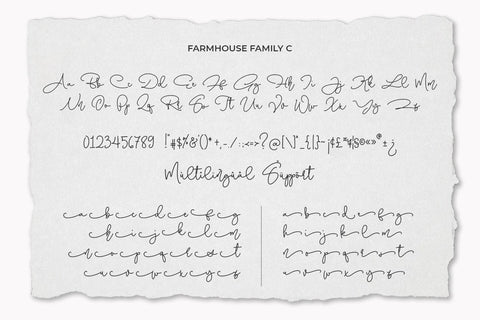 FARMHOUSE FAMILY C
Aa Bb Cc Dd Ee Ff Gg Hh Ii Jj Kk Ll Mm
Nn Oo Pp Qq Rr Ss Tt Uu Vv Ww Xx Yy Zz
0123456789 !"#$%&'()*+,-./:;<=>?@[\]^_{|}~¡¢£¤¥¦§©«»®±¿
Multilingüãl Süppört
a b c d e f g
h i j k l m
n o p q r s t
u v w x y z
a b c d e f g
h i j k l m
n o p q r s t
u v w x y z